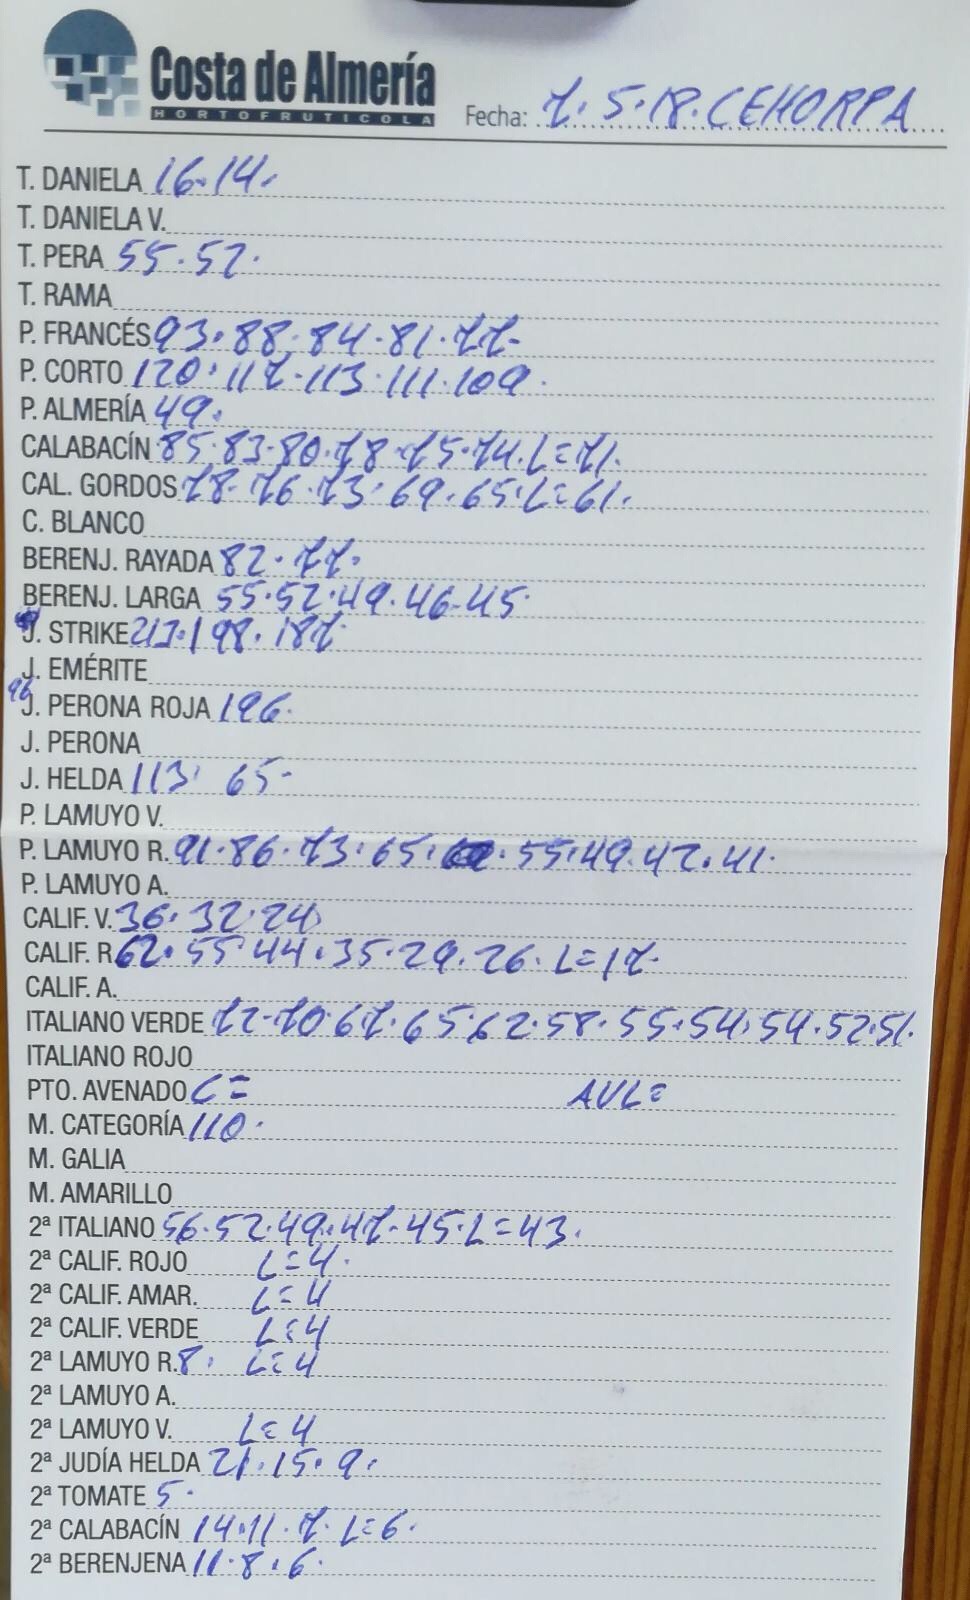 Costa de Almería
HORTOFRUTICOLA
Fecha: 7.5.18. CEHORPA
T. DANIELA 16.14.
T. DANIELA V.
T. PERA 55.52.
T. RAMA
P. FRANCÉS 93.88.84.81.77.
P. CORTO 120.117.113.111.109.
P. ALMERÍA 49.
CALABACÍN 85.83.80.78.75.74.L=71.
CAL. GORDOS 78.76.73.69.65.L=61.
C. BLANCO
BERENJ. RAYADA 82.77.
BERENJ. LARGA 55.52.49.46.45
J. STRIKE 217.198.187.
J. EMÉRITE
96
J. PERONA ROJA 196.
J. PERONA
J. HELDA 113. 65.
P. LAMUYO V.
P. LAMUYO R. 91.86.73.65. .55.49.47.41.
P. LAMUYO A.
CALIF. V. 36.32.24
CALIF. R. 62.55.44.35.29.26.L=17.
CALIF. A.
ITALIANO VERDE 72.70.67.65.62.58.55.54.54.52.51.
ITALIANO ROJO
PTO. AVENADO C= AVL=
M. CATEGORÍA 110.
M. GALIA
M. AMARILLO
2ª ITALIANO 56.52.49.47.45.L=43.
2ª CALIF. ROJO L=4.
2ª CALIF. AMAR. L=4
2ª CALIF. VERDE L=4
2ª LAMUYO R. 8. L=4
2ª LAMUYO A.
2ª LAMUYO V. L=4
2ª JUDÍA HELDA 21.15.9.
2ª TOMATE 5.
2ª CALABACÍN 14.11.7.L=6.
2ª BERENJENA 11.8.6.